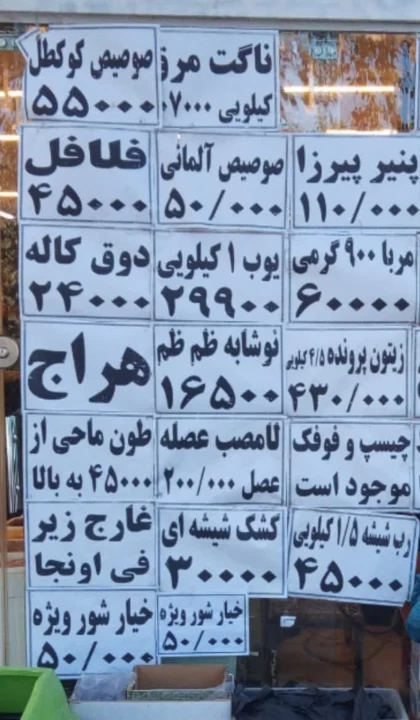 ناگت مرغ
کیلویی ۷۰۰۰
صوصیص کوکطل
۵۵۰۰۰
پنیر پیرزا
۱۱۰/۰۰۰
صوصیص آلمانی
۵۰/۰۰۰
فلافل
۴۵۰۰۰
مربا ۹۰۰ گرمی
۶۰۰۰۰
یوب ۱ کیلویی
۲۹۹۰۰
دوق کاله
۲۴۰۰۰
زیتون پرونده ۴/۵ کیلویی
۴۳۰/۰۰۰
نوشابه ظم ظم
۱۶۵۰۰
هراج
چیسپ و فوفک
موجود است
لامصب عصله
عصل ۲۰۰/۰۰۰
طون ماحی از
۴۵۰۰۰ به بالا
رب شیشه ۱/۵ کیلویی
۴۵۰۰۰
کشک شیشه ای
۳۰۰۰۰
غارج زیر
فی اونجا
خیار شور ویژه
۵۰/۰۰۰
خیار شور ویژه
۵۰/۰۰۰